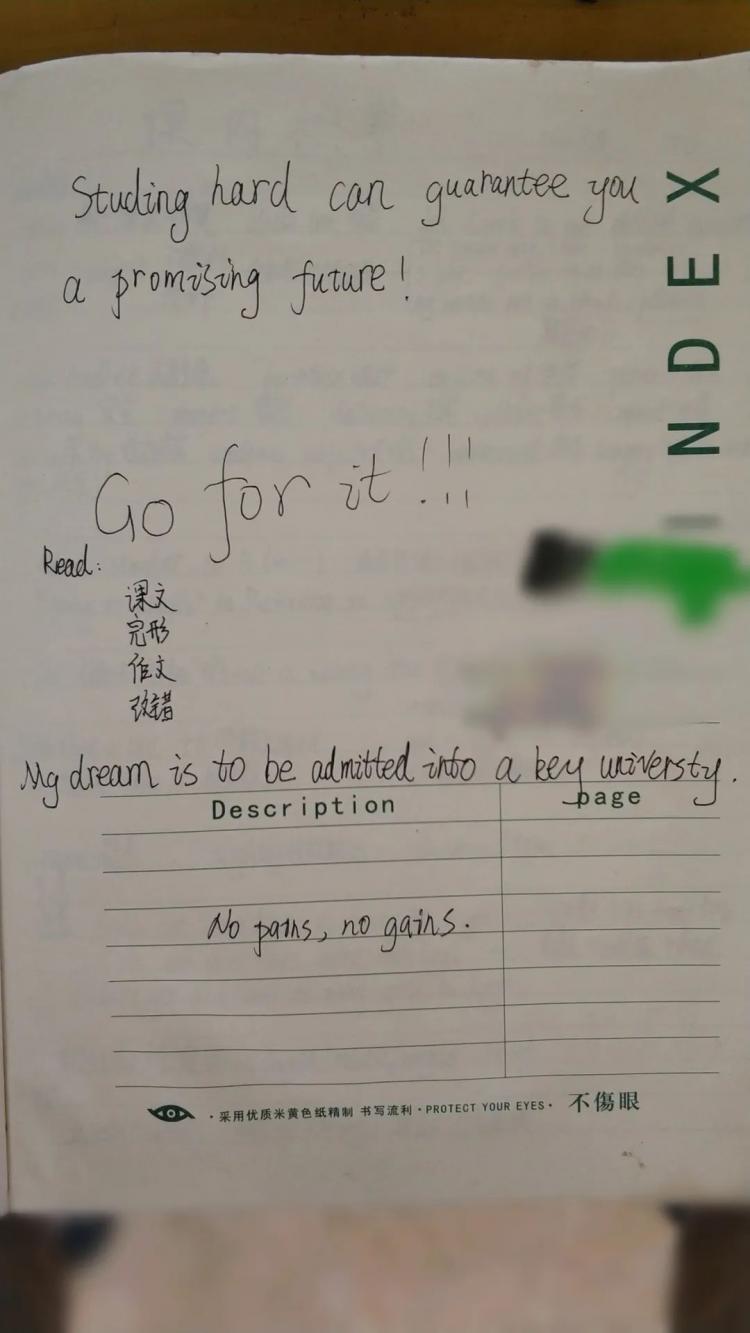 Studing hard can guarantee you
a promising future!
INDEX
Go for it!!!
Read:
课文
完形
作文
改错
My dream is to be admitted into a key universty.
Description page
No pains, no gains.
·采用优质米黄色纸精制 书写流利·PROTECT YOUR EYES· 不傷眼